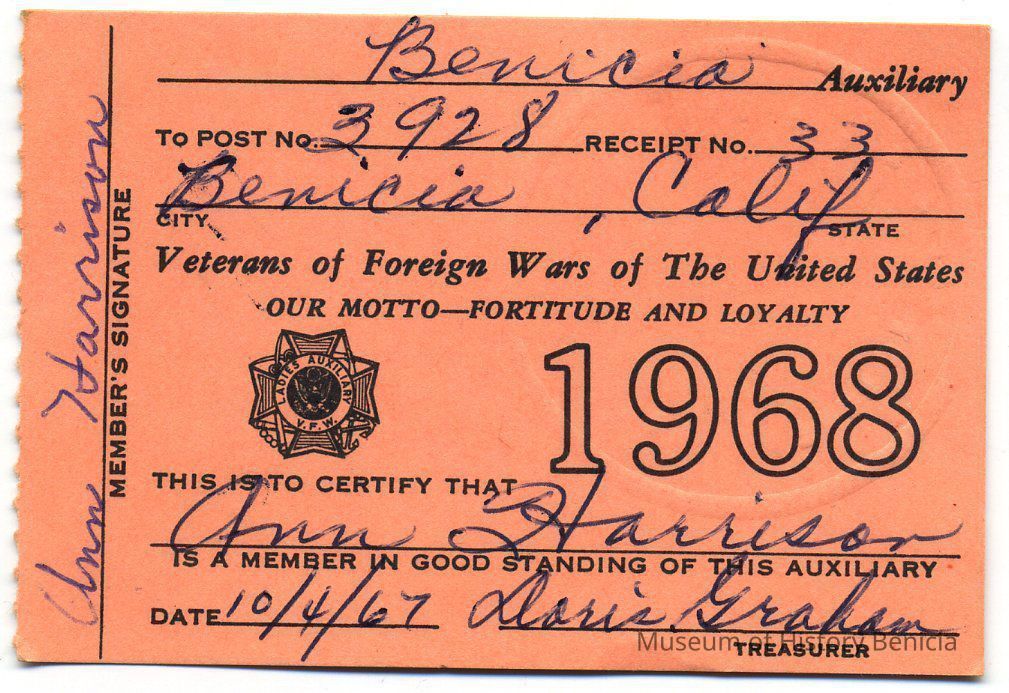 Benicia Auxiliary
TO POST NO. 3928 RECEIPT NO. 33
Benicia, Calif
CITY STATE
Veterans of Foreign Wars of The United States
OUR MOTTO—FORTITUDE AND LOYALTY
LADIES AUXILIARY
V.F.W.
1968
THIS IS TO CERTIFY THAT
Ann Harrison
IS A MEMBER IN GOOD STANDING OF THIS AUXILIARY
DATE 10/4/67 Doris Graham
TREASURER
MEMBER'S SIGNATURE
Ann Harrison
Museum of History Benicia